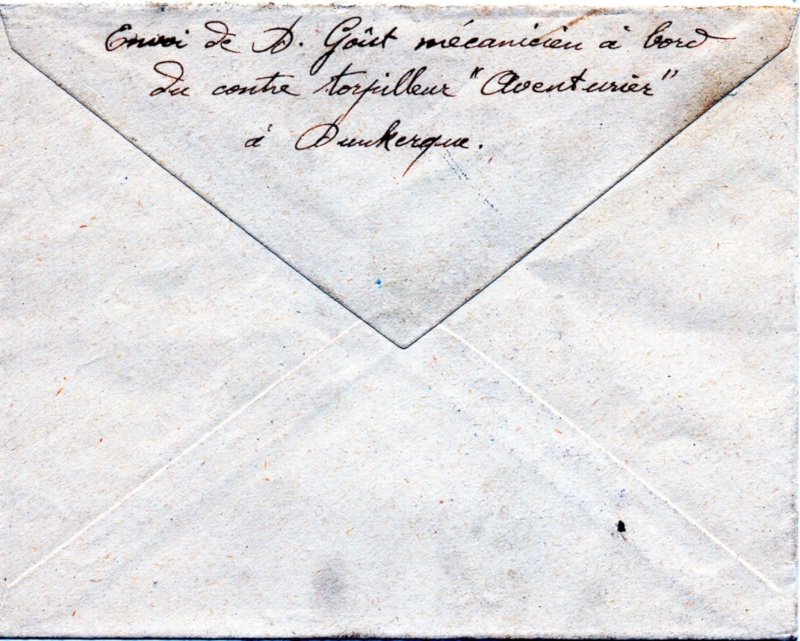 Envoi de D. Goût mécanicien à bord
du contre torpilleur "Aventurier"
à Dunkerque.